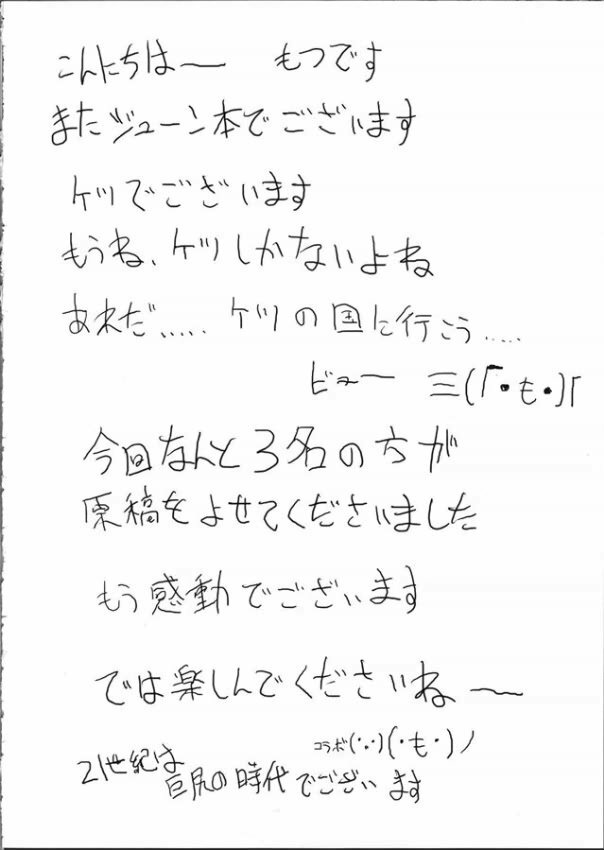 こんにちは〜　もつです
またジューン本でございます
ケツでございます
もうね、ケツしかないよね
あれだ..... ケツの国に行こう.....
ビュー 三(「・も・)「
今回なんと3名の方が
原稿をよせてくださいました
もう感動でございます
では楽しんでくださいね〜
コラボ(・.・)(・も・)ノ
21世紀は
巨尻の時代でございます